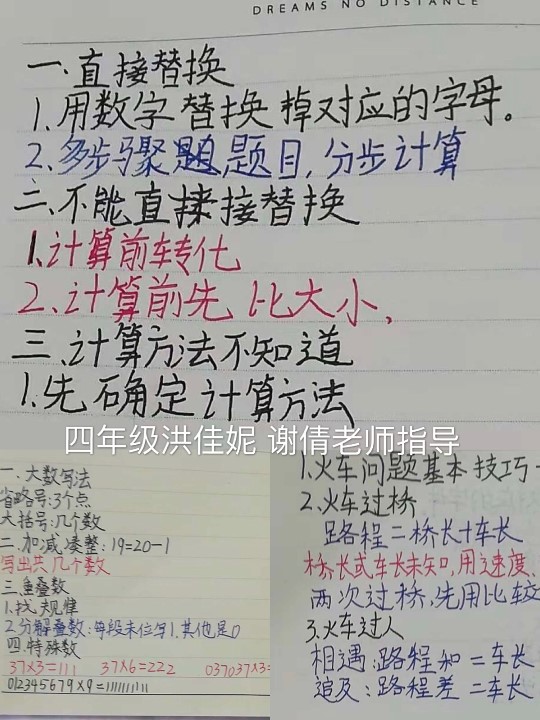 DREAMS NO DISTANCE
一.直接替换
1.用数字替换掉对应的字母。
2.多步骤题目,分步计算
二.不能直接替换
1.计算前转化
2.计算前先比大小,
三.计算方法不知道
1.先确定计算方法
四年级洪佳妮 谢倩老师指导
一.大数写法
省略号:3个点
大括号:几个数
二.加减凑整:19=20-1
写出共几个数
三.重叠数
1.找规律
2.分解叠数:每段末位写1,其他是0
四.特殊数
37×3=111 37×6=222 037037×3=
012345679×9=111111111
1.火车问题基本技巧
2.火车过桥
路程=桥长+车长
桥长或车长未知,用速度
两次过桥,先用比较
3.火车过人
相遇:路程和=车长
追及:路程差=车长